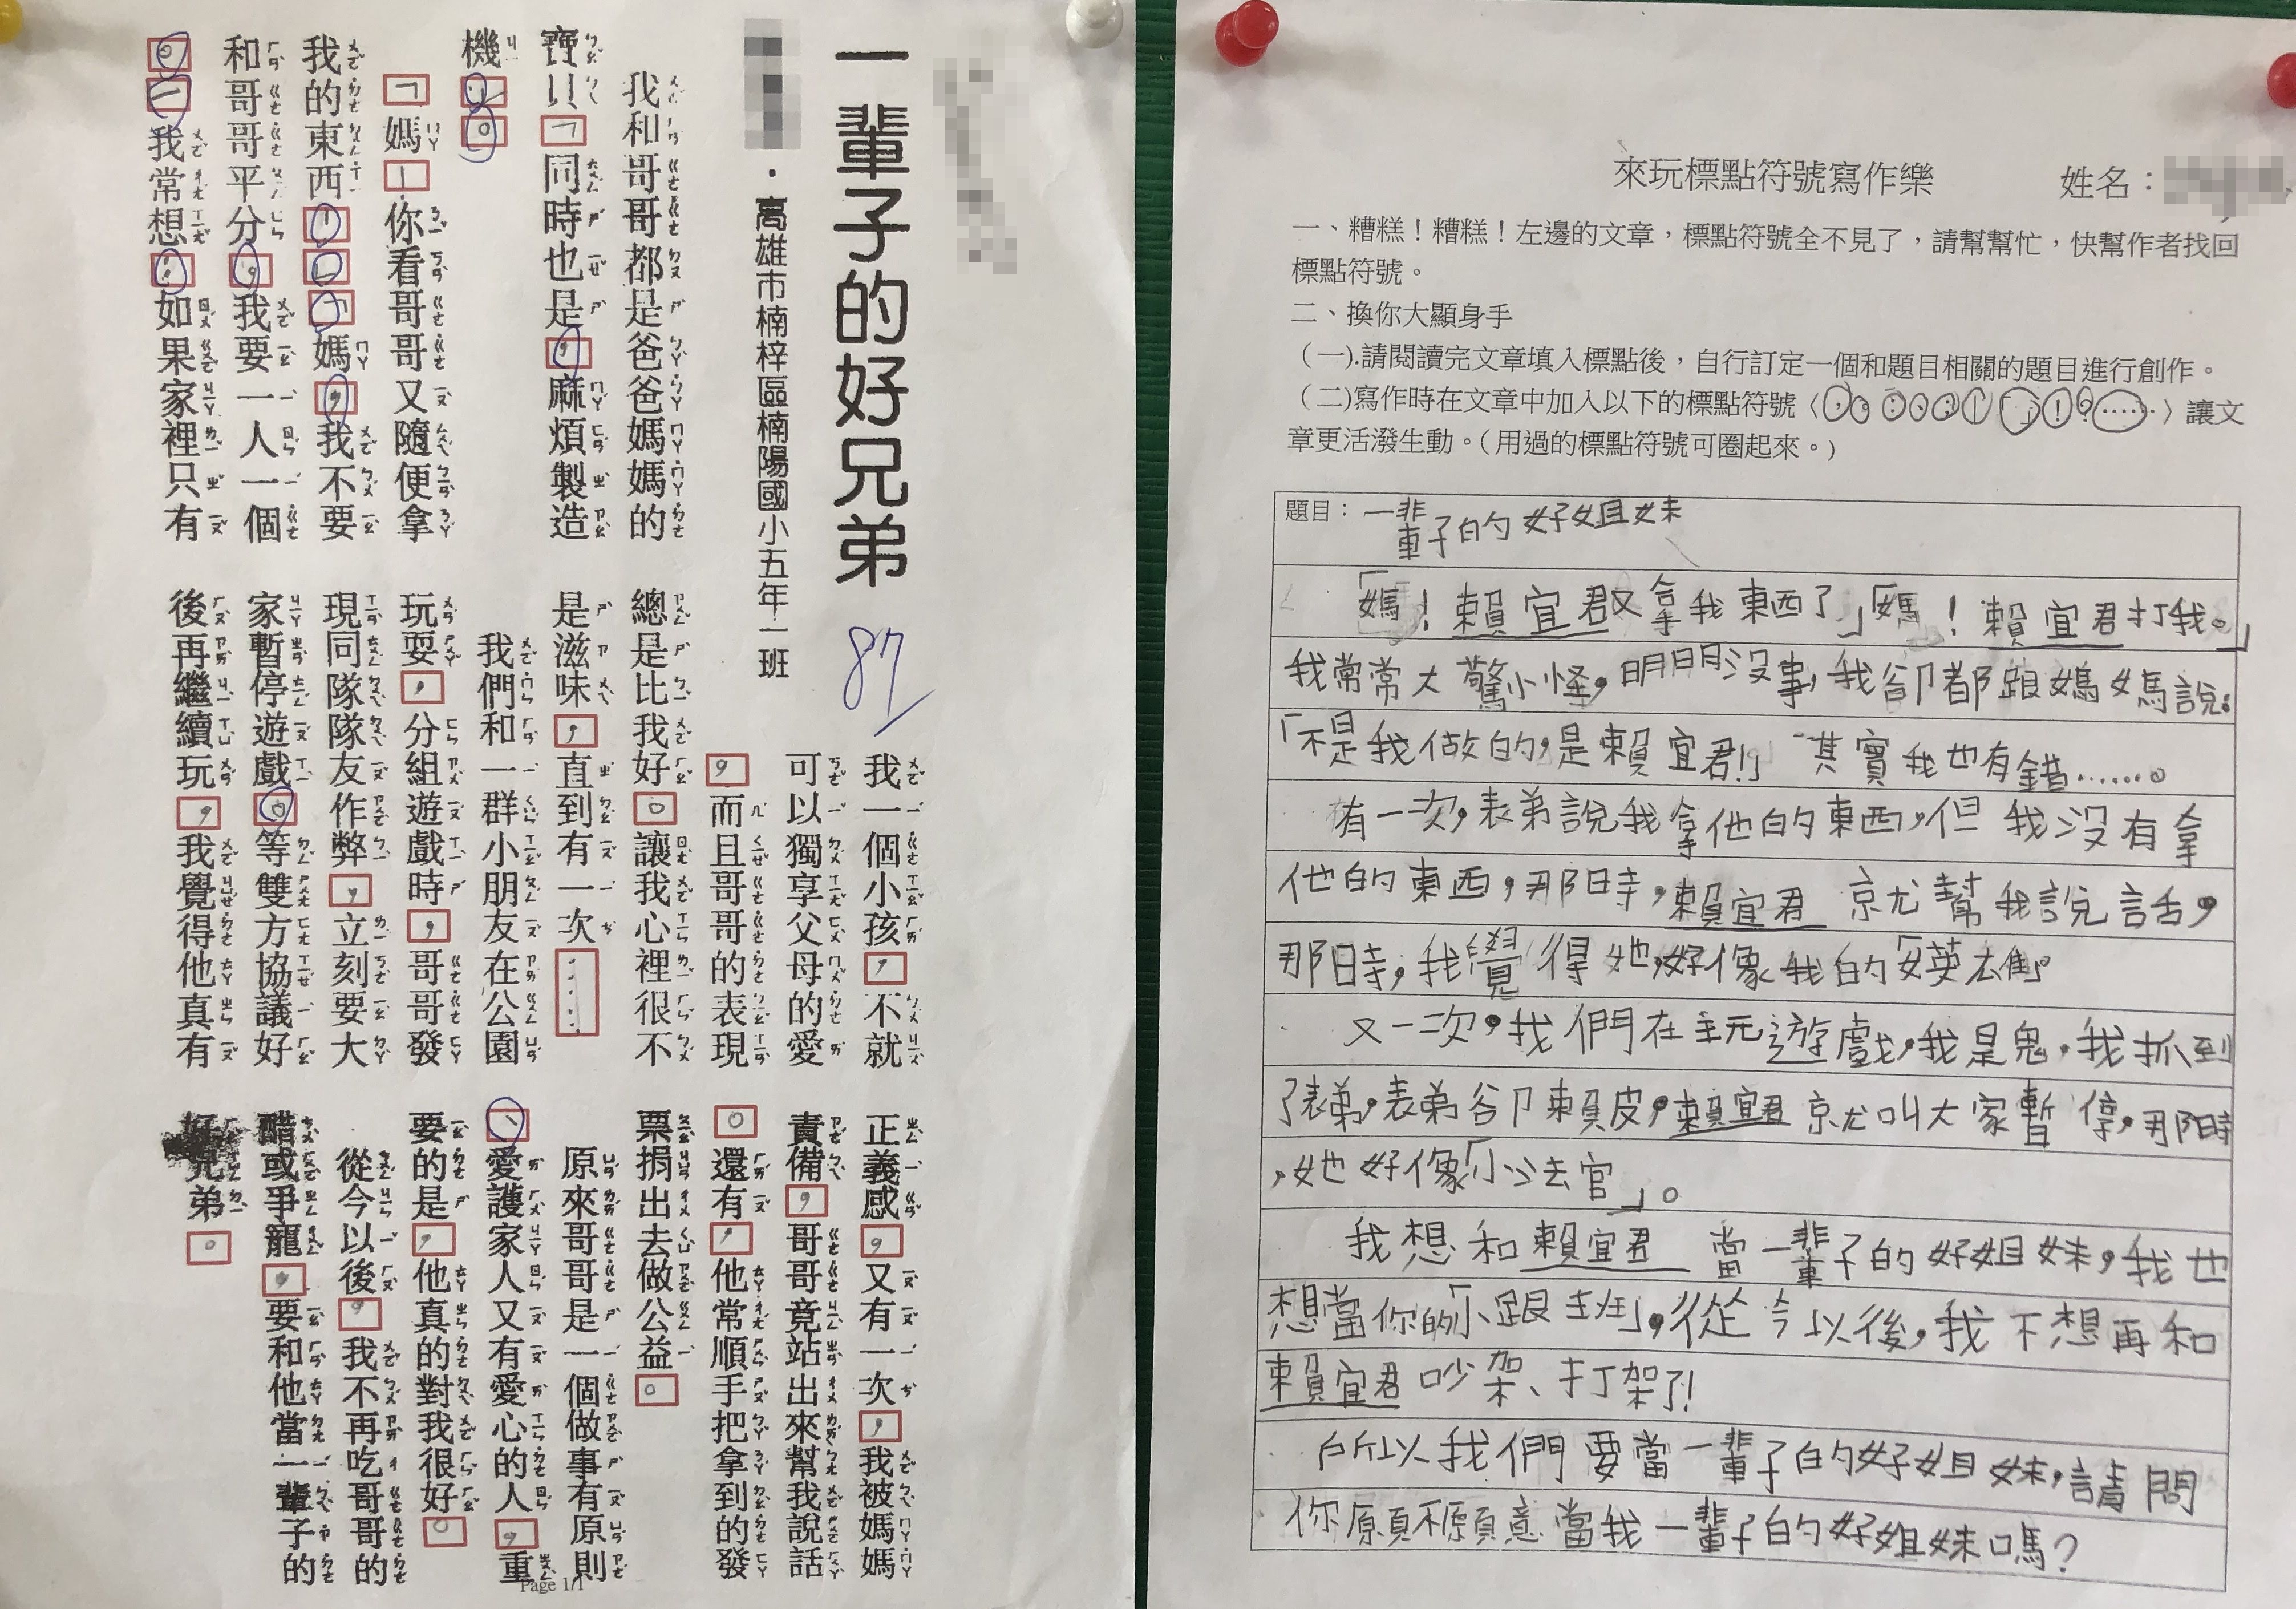 一輩子的好兄弟
・高雄市楠梓區楠陽國小五年一班
87
我和哥哥都是爸爸媽媽的
寶貝「同時也是,麻煩製造
機
「媽!你看哥哥又隨便拿
我的東西!」「媽,我不要
和哥哥平分,我要一人一個
。」我常想:如果家裡只有
我一個小孩,不就
可以獨享父母的愛
,而且哥哥的表現
總是比我好。讓我心裡很不
是滋味,直到有一次……
我們和一群小朋友在公園
玩耍,分組遊戲時,哥哥發
現同隊隊友作弊,立刻要大
家暫停遊戲。等雙方協議好
後再繼續玩,我覺得他真有
正義感,又有一次,我被媽媽
責備,哥哥竟站出來幫我說話
。還有,他常順手把拿到的發
票捐出去做公益。
原來哥哥是一個做事有原則
、愛護家人又有愛心的人,重
要的是,他真的對我很好。
從今以後,我不再吃哥哥的
醋或爭寵,要和他當一輩子的
好兄弟。
Page 1/1
來玩標點符號寫作樂 姓名:
一、糟糕!糟糕!左邊的文章,標點符號全不見了,請幫幫忙,快幫作者找回
標點符號。
二、換你大顯身手
(一).請閱讀完文章填入標點後,自行訂定一個和題目相關的題目進行創作。
(二)寫作時在文章中加入以下的標點符號〈,。、:;「」!?……〉讓文
章更活潑生動。(用過的標點符號可圈起來。)
題目:一輩子的好姐妹
「媽!賴宜君又拿我東西了」「媽!賴宜君打我。」
我常常大驚小怪,明明沒事,我卻都跟媽媽說:
「不是我做的,是賴宜君!」其實我也有錯……。
有一次,表弟說我拿他的東西,但我沒有拿
他的東西,那時,賴宜君就幫我說話,
那時,我覺得她,好像我的「英雄」。
又一次,我們在玩遊戲,我是鬼,我抓到
了表弟,表弟卻賴皮,賴宜君就叫大家暫停,那時
,她好像「小法官」。
我想和賴宜君當一輩子的好姐妹,我也
想當你的「小跟班」,從今以後,我不想再和
賴宜君吵架、打架了!
所以我們要當一輩子的好姐妹,請問
你願不願意當我一輩子的好姐妹嗎?